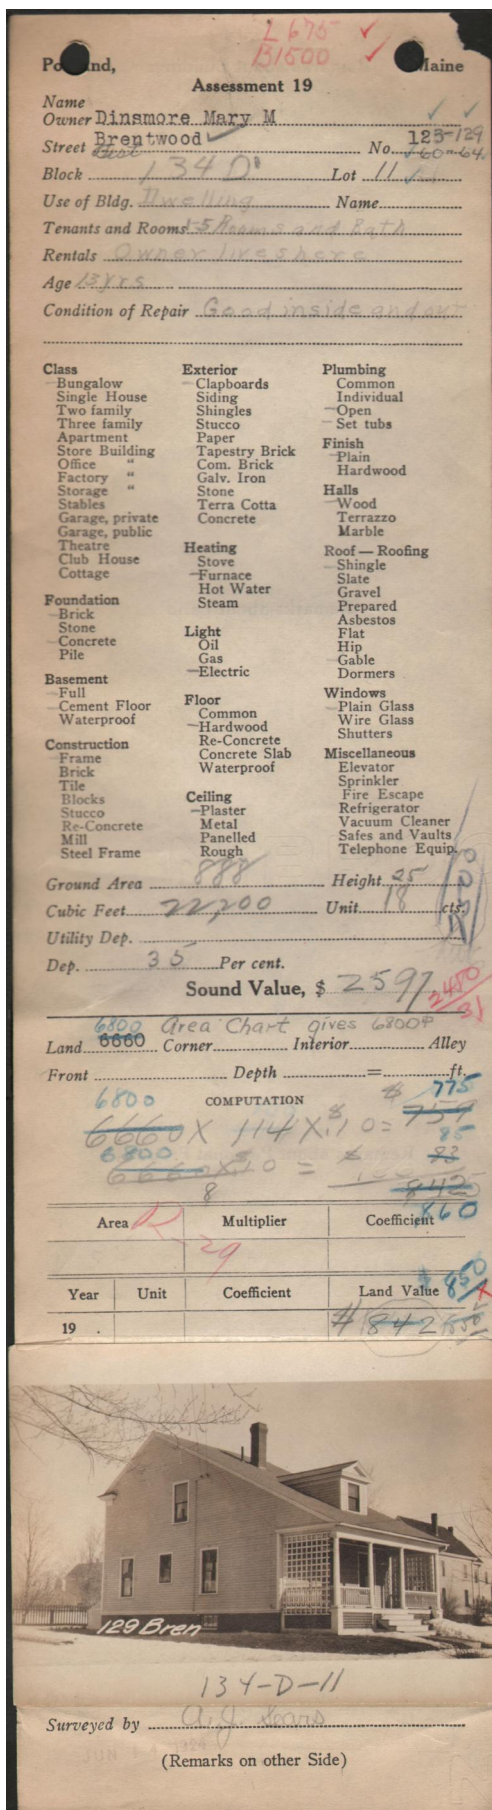 L 675 ✓
B1500 ✓
Po nd, Maine
Assessment 19
Name
Owner Dinsmore Mary M
Street Brentwood No. 123-129
60-64
Block 134 D Lot 11
Use of Bldg. Dwelling Name
Tenants and Rooms 1-5 Rooms and Bath
Rentals Owner lives here
Age 13 yrs
Condition of Repair Good inside and out
Class
Bungalow
Single House
Two family
Three family
Apartment
Store Building
Office "
Factory "
Storage "
Stables
Garage, private
Garage, public
Theatre
Club House
Cottage
Foundation
Brick
Stone
Concrete
Pile
Basement
Full
Cement Floor
Waterproof
Construction
Frame
Brick
Tile
Blocks
Stucco
Re-Concrete
Mill
Steel Frame
Exterior
Clapboards
Siding
Shingles
Stucco
Paper
Tapestry Brick
Com. Brick
Galv. Iron
Stone
Terra Cotta
Concrete
Heating
Stove
Furnace
Hot Water
Steam
Light
Oil
Gas
Electric
Floor
Common
Hardwood
Re-Concrete
Concrete Slab
Waterproof
Ceiling
Plaster
Metal
Panelled
Rough
Plumbing
Common
Individual
Open
Set tubs
Finish
Plain
Hardwood
Halls
Wood
Terrazzo
Marble
Roof — Roofing
Shingle
Slate
Gravel
Prepared
Asbestos
Flat
Hip
Gable
Dormers
Windows
Plain Glass
Wire Glass
Shutters
Miscellaneous
Elevator
Sprinkler
Fire Escape
Refrigerator
Vacuum Cleaner
Safes and Vaults
Telephone Equip.
Ground Area 888 Height 25
Cubic Feet 22,200 Unit 18 cts.
Utility Dep.
Dep. 35 Per cent.
Sound Value, $ 2597
2450
31
6800 Area Chart gives 6800
Land 6660 Corner Interior Alley
Front Depth = ft.
6800 COMPUTATION $ 775
6660 X 114 X .10 = 759
6800 85
6660 X .10 = $ 83
8 842
860
Area Multiplier Coefficient
R
29
Year Unit Coefficient Land Value
$ 850
19 . $ 842 850
129 Bren
134-D-11
Surveyed by A. J. Sears
(Remarks on other Side)